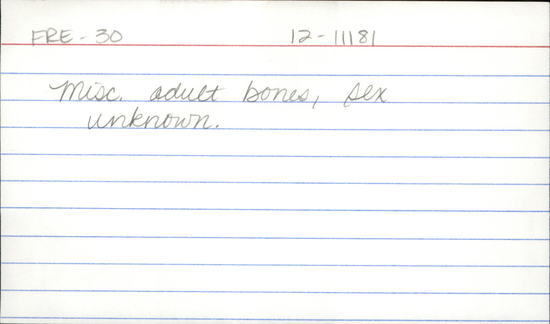 FRE-30 12-11181
Misc. adult bones, sex
unknown.